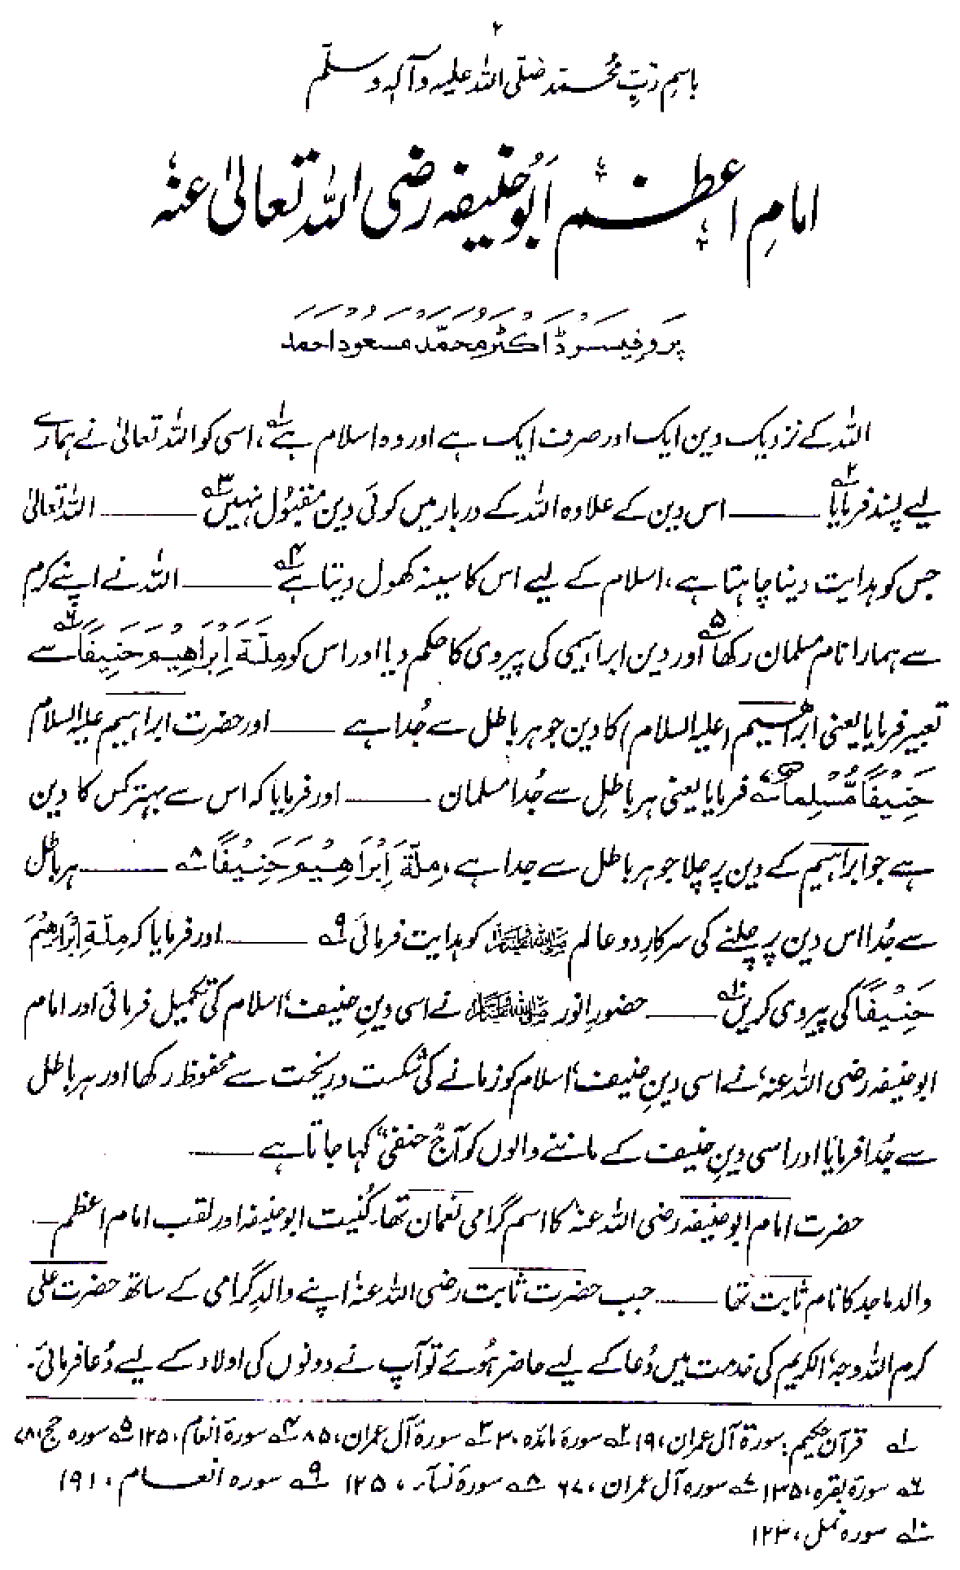 ۲
باسمِ ربِّ محمّد صلّی اللہ علیہ وآلہٖ وسلّم
امامِ اعظم ابُو حنیفہ رضی اللہ تعالیٰ عنہٗ
پروفیسر ڈاکٹر محمّد مسعود احمد
اللہ کے نزدیک دین ایک اور صرف ایک ہے اور وہ اسلام ہے۱؎، اسی کو اللہ تعالیٰ نے ہمارے
لیے پسند فرمایا۲؎ ــــــ اس دین کے علاوہ اللہ کے دربار میں کوئی دین مقبُول نہیں۳؎ ــــــ اللہ تعالیٰ
جس کو ہدایت دینا چاہتا ہے، اسلام کے لیے اس کا سینہ کھول دیتا ہے۴؎ ــــــ اللہ نے اپنے کرم
سے ہمارا نام مسلمان رکھا۵؎ اور دین ابراہیمی کی پیروی کا حکم دیا اور اس کو مِلَّۃَ اِبْرَاھِیْمَ حَنِیْفًا۶؎ سے
تعبیر فرمایا یعنی ابراھیم (علیہ السلام) کا دین جو ہر باطل سے جُدا ہے ــــــ اور حضرت ابراہیم علیہ السلام
حَنِیْفًا مُّسْلِمًا۷؎ فرمایا یعنی ہر باطل سے جُدا مسلمان ــــــ اور فرمایا کہ اس سے بہتر کس کا دین
ہے جو ابراہیم کے دین پر چلا جو ہر باطل سے جدا ہے، مِلَّۃَ اِبْرَاھِیْمَ حَنِیْفًا۸؎ ــــــ ہر باطل
سے جُدا اس دین پر چلنے کی سرکارِ دو عالم ﷺ کو ہدایت فرمائی۹؎ ــــــ اور فرمایا کہ مِلَّۃَ اِبْرَاھِیْمَ
حَنِیْفًا کی پیروی کریں۱۰؎ ــــــ حضورِ انور ﷺ نے اسی دینِ حنیف، اسلام کی تکمیل فرمائی اور امام
ابو حنیفہ رضی اللہ عنہٗ نے اسی دینِ حنیف، اسلام کو زمانے کی شکست و ریخت سے محفوظ رکھا اور ہر باطل
سے جُدا فرمایا اور اسی دینِ حنیف کے ماننے والوں کو آج ”حنفی“ کہا جاتا ہے ــــــ
حضرت امام ابو حنیفہ رضی اللہ عنہٗ کا اسم گرامی نعمان تھا، کُنیت ابو حنیفہ اور لقب امام اعظم ــ
والد ماجد کا نام ثابت تھا ــــــ جب حضرت ثابت رضی اللہ عنہٗ اپنے والدِ گرامی کے ساتھ حضرت علی
کرم اللہ وجہہٗ الکریم کی خدمت میں دُعا کے لیے حاضر ہُوئے تو آپ نے دونوں کی اولاد کے لیے دُعا فرمائی۔
۱؎ قرآن حکیم: سورۃ آل عمران، ۱۹ ۲؎ سورۃ مائدہ، ۳ ۳؎ سورۃ آل عمران، ۸۵ ۴؎ سورۃ انعام، ۱۲۵ ۵؎ سورہ حج، ۷۸
۶؎ سورۃ بقرہ، ۱۳۵ ۷؎ سورہ آل عمران، ۶۷ ۸؎ سورۃ نسآء، ۱۲۵ ۹؎ سورہ انعام، ۱۶۱
۱۰؎ سورہ نحل، ۱۲۳